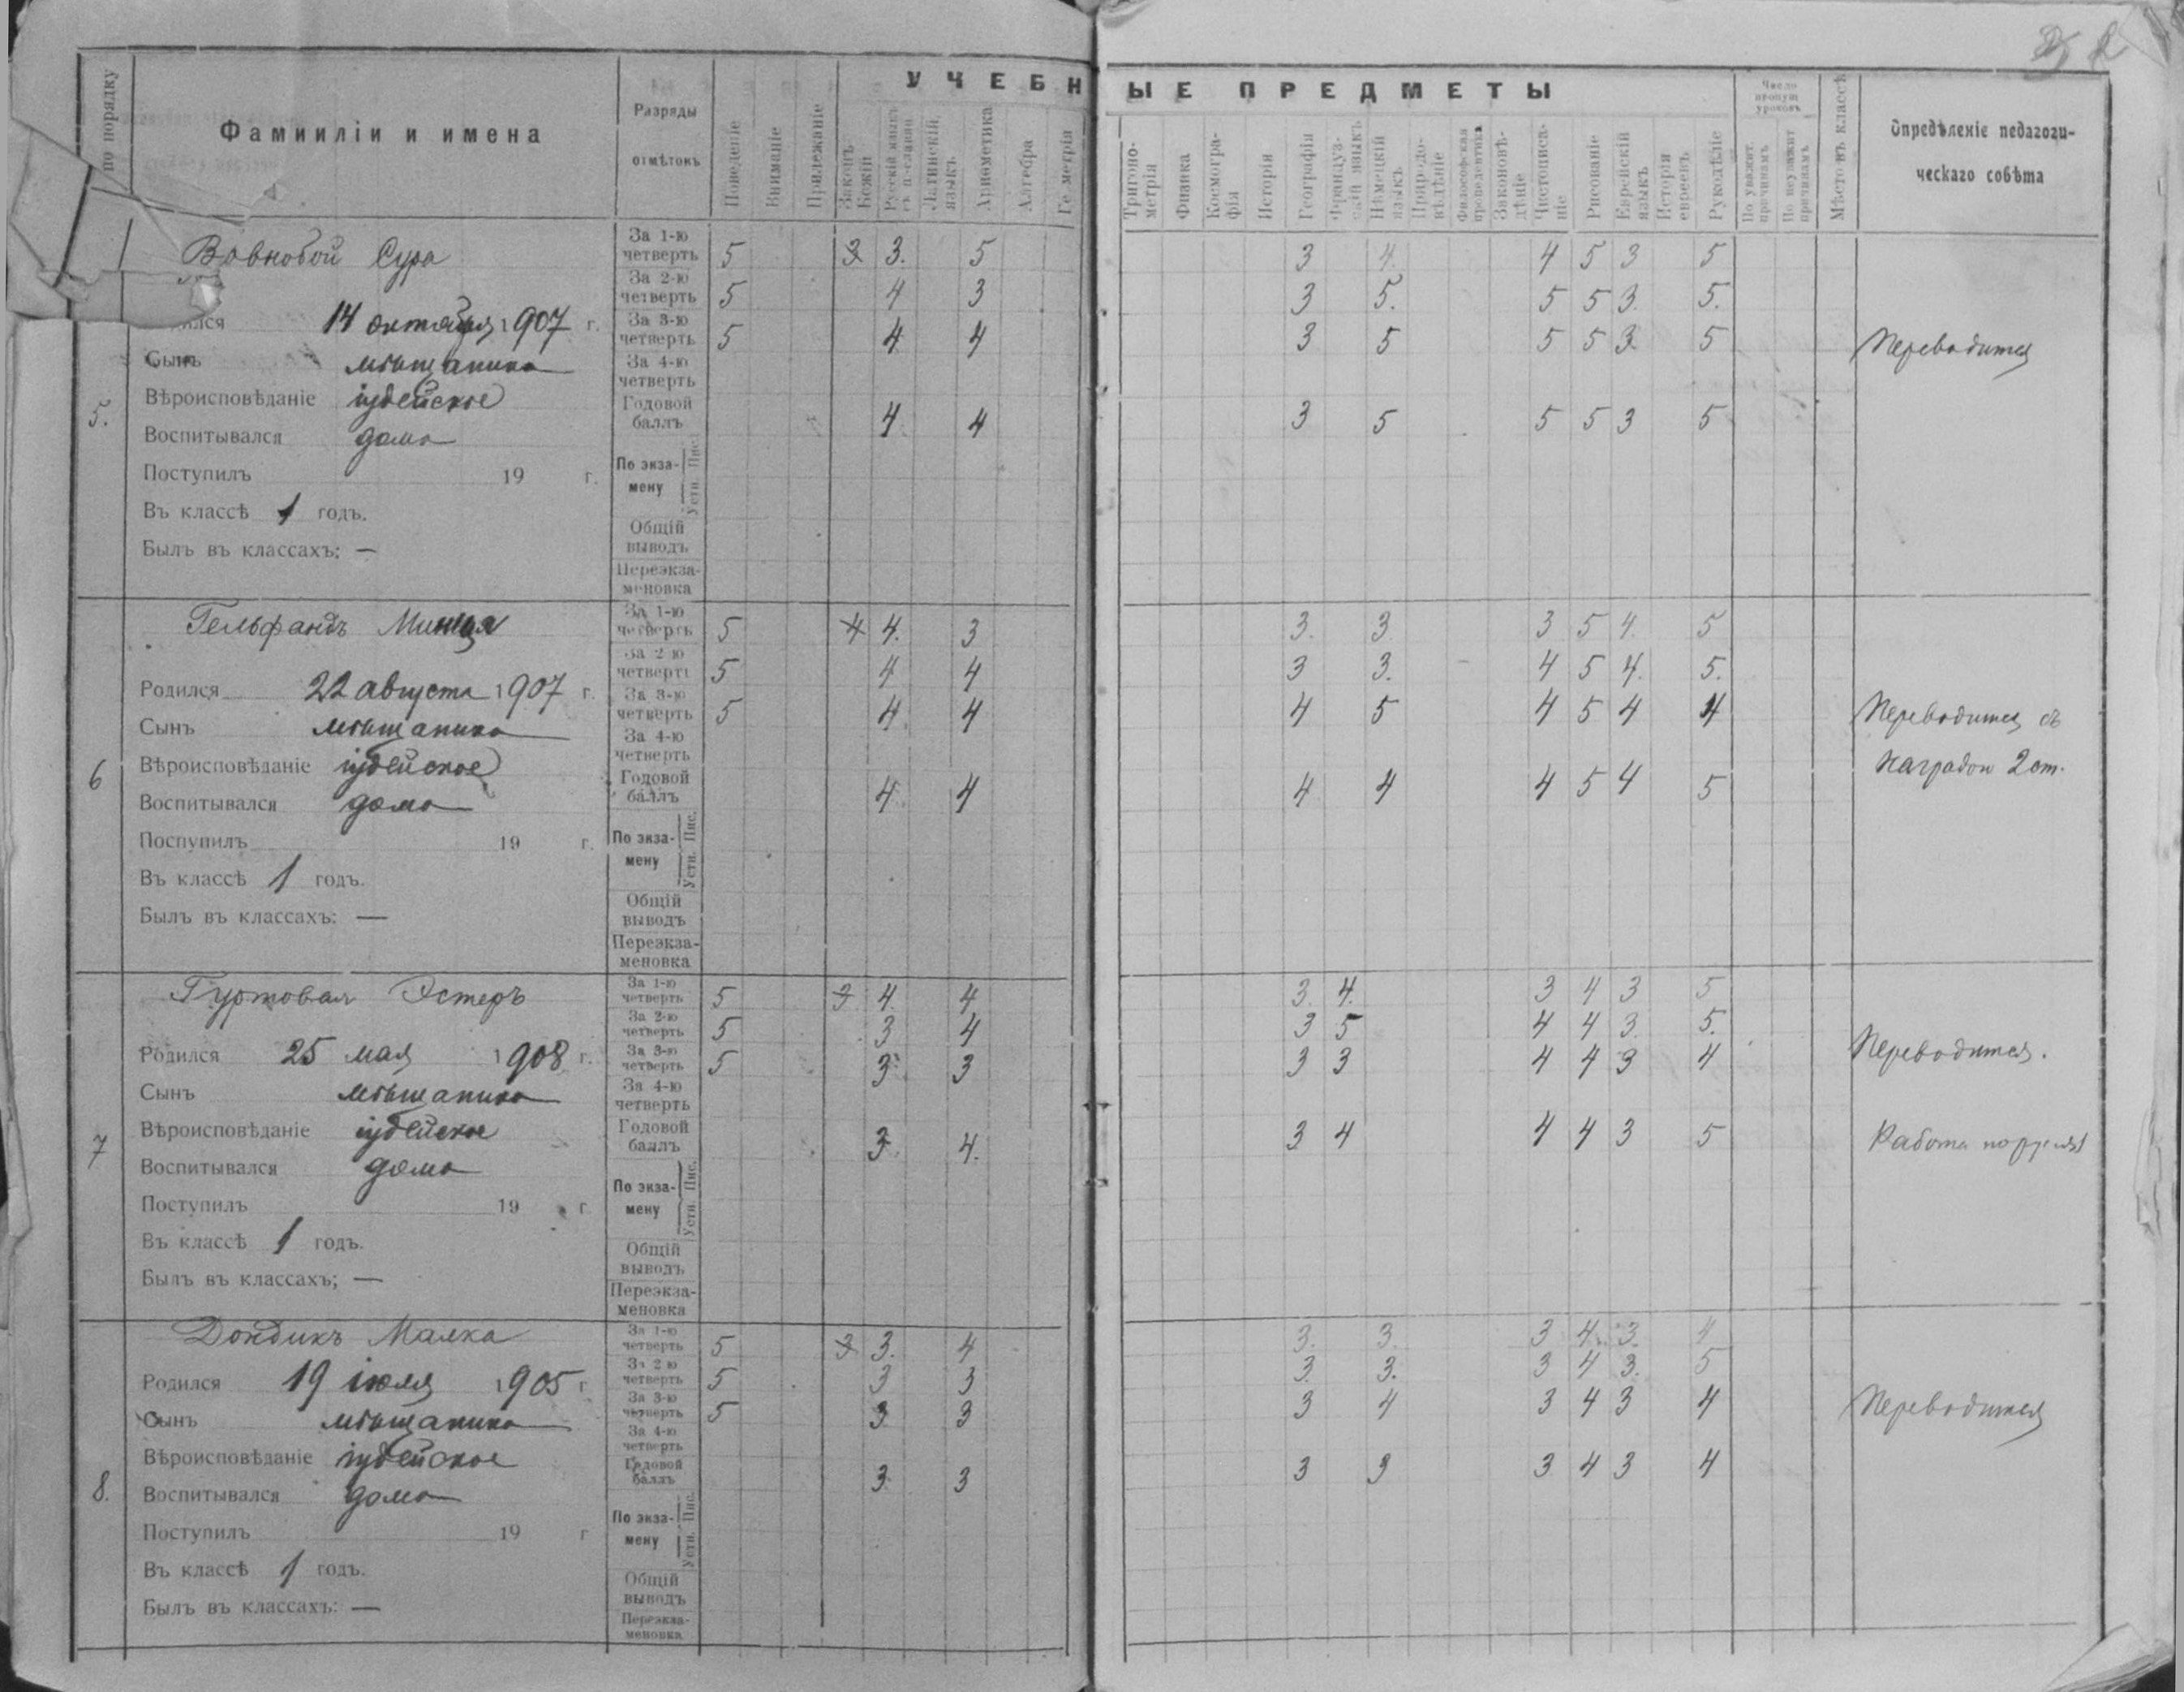 УЧЕБНЫЕ ПРЕДМЕТЫ
по порядку
Фамииліи и имена
Разряды
отмѣтокъ
Поведеніе
Вниманіе
Прилежаніе
Законъ Божій
Русскій языкъ
Латинскій языкъ
Ариѳметика
Алгебра
Ге метрія
Тригоно-метрія
Физика
Космогра-фія
Исторія
Географія
Француз-скій языкъ
Нѣмецкій языкъ
Природо-вѣдѣніе
Философская пропедевтика
Законовѣ-дѣніе
Чистописа-ніе
Рисованіе
Еврейскій языкъ
Исторія евреевъ
Рукодѣліе
Число пропущ уроковъ
По уважит. причинамъ
По неуважит причинамъ
Мѣсто въ классѣ
Опредѣленіе педагоги-
ческаго совѣта
5.
Вовнобой Сура
14 октября 1907 г.
Сынъ мѣщанина
Вѣроисповѣданіе іудейское
Воспитывался дома
Поступилъ 19 г.
Въ классѣ 1 годъ.
Былъ въ классахъ: —
За 1-ю четверть 5 3 3. 5 3 4. 4 5 3 5
За 2-ю четверть 5 4 3 3 5. 5 5 3. 5.
За 3-ю четверть 5 4 4 3 5 5 5 3. 5
За 4-ю четверть
Годовой баллъ 4 4 3 5 5 5 3 5
По экза-мену Пис. Устн.
Общій выводъ
Переэкза-меновка
Переводится
6
Гельфандъ
Родился 22 августа 1907 г.
Сынъ мѣщанина
Вѣроисповѣданіе іудейское
Воспитывался дома
Поспупилъ 19 г.
Въ классѣ 1 годъ.
Былъ въ классахъ: —
За 1-ю четверть 5 4 4. 3 3. 3 3 5 4. 5
За 2-ю четверть 5 4 4 3 3. 4 5 4. 5.
За 3-ю четверть 5 4. 4 4 5 4 5 4 4
За 4-ю четверть
Годовой баллъ 4. 4 4 4 4 5 4 5
По экза-мену Пис. Устн.
Общій выводъ
Переэкза-меновка
Переводится съ
наградой 2 ст.
7
Гуртовая Эстеръ
Родился 25 мая 1908 г.
Сынъ мѣщанина
Вѣроисповѣданіе іудейское
Воспитывался дома
Поступилъ 19 г.
Въ классѣ 1 годъ.
Былъ въ классахъ; —
За 1-ю четверть 5 3 4. 4 3. 4. 3 4 3 5
За 2-ю четверть 5 3 4 3 5 4 4 3. 5.
За 3-ю четверть 5 3 3 3 3 4 4 3 4
За 4-ю четверть
Годовой баллъ 3. 4. 3 4 4 4 3 5
По экза-мену Пис. Устн.
Общій выводъ
Переэкза-меновка
Переводится.
Работа по
8.
Дондикъ Малка
Родился 19 іюля 1905 г
Сынъ мѣщанина
Вѣроисповѣданіе іудейское
Воспитывался дома
Поступилъ 19 г
Въ классѣ 1 годъ.
Былъ въ классахъ: —
За 1-ю четверть 5 3 3. 4 3. 3. 3 4. 3. 4
За 2 ю четверть 5 3 3 3. 3. 3 4 3. 5
За 3-ю четверть 5 3 3 3 4 3 4 3 4
За 4-ю четверть
Годовой баллъ 3. 3 3 3 3 4 3 4
По экза-мену Пис. Устн.
Общій выводъ
Переэкза-меновка
Переводится